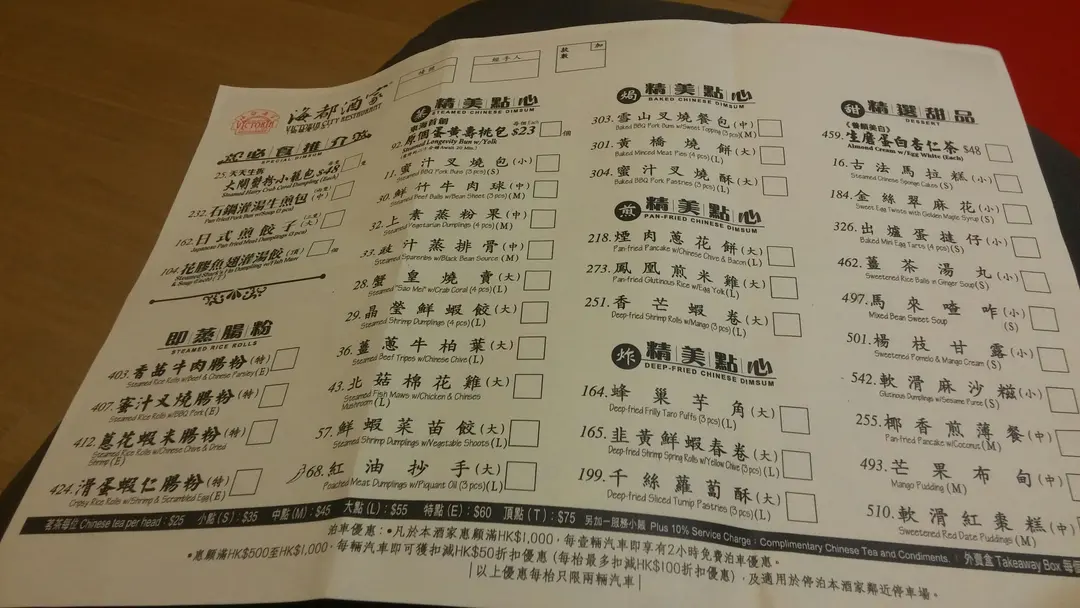 海都酒家
VICTORIA CITY RESTAURANT
枱號
經手人
加
款數
SPECIAL DIMSUM
25. 天天生拆
大閘蟹粉小籠包 $48
Steamed Hairy Crab Coral Dumpling (Each)
232. 石鍋灌湯生煎包 (中)
Pan Fried Pork Bun w/Soup (2 pcs)
162. 日式煎餃子 (大)
Japanese Pan Fried Meat Dumplings (3 pcs)
104. 花膠魚翅灌湯餃 (頂)
即蒸腸粉
STEAMED RICE ROLLS
403. 香茜牛肉腸粉 (特)
Steamed Rice Rolls w/Beef & Chinese Parsley (E)
407. 蜜汁叉燒腸粉 (特)
Steamed Rice Rolls w/BBQ Pork (E)
412. 蔥花蝦米腸粉 (特)
Steamed Rice Rolls w/Chinese Chive & Dried Shrimp (E)
424. 滑蛋蝦仁腸粉 (特)
Cripsy Rice Rolls w/Shrimp & Scrambled Egg (E)
蒸 精美點心
STEAMED CHINESE DIMSUM
東海首創 每個 Each
92. 原個蛋黃壽桃包 $23 個
Steamed Longevity Bun w/Yolk
11. 蜜汁叉燒包 (小)
Steamed BBQ Pork Buns (3 pcs) (S)
30. 鮮竹牛肉球 (中)
Steamed Beef Balls w/Bean Sheet (3 pcs) (M)
32. 上素蒸粉果 (中)
Steamed Vegetarian Dumplings (4 pcs) (M)
33. 豉汁蒸排骨 (中)
Steamed Spareribs w/Black Bean Source (M)
28. 蟹皇燒賣 (大)
Steamed "Sao Mei" w/Crab Coral (4 pcs) (L)
29. 晶瑩鮮蝦餃 (大)
Steamed Shrimp Dumplings (4 pcs) (L)
36. 薑蔥牛柏葉 (大)
Steamed Beef Tripes w/Chinese Chive (L)
43. 北菇棉花雞 (大)
Steamed Fish Maws w/Chicken & Chinses Mushroom (L)
57. 鮮蝦菜苗餃 (大)
Steamed Shrimp Dumplings w/Vegetable Shoots (L)
68. 紅油抄手 (大)
Poached Meat Dumplings w/Piquant Oil (3 pcs) (L)
焗 精美點心
BAKED CHINESE DIMSUM
303. 雪山叉燒餐包 (中)
Baked BBQ Pork Buns w/Sweet Topping (3 pcs) (M)
301. 黃橋燒餅 (大)
Baked Minced Meat Pies (4 pcs) (L)
304. 蜜汁叉燒酥 (大)
Baked BBQ Pork Pastries (3 pcs) (L)
煎 精美點心
PAN-FRIED CHINESE DIMSUM
218. 煙肉蔥花餅 (大)
Pan-fried Pancake w/Chinese Chive & Bacon (L)
273. 鳳凰煎米雞 (大)
Pan-fried Glutinous Rice w/Egg Yolk (L)
251. 香芒蝦卷 (大)
Deep-fried Shrimp Rolls w/Mango (3 pcs) (L)
炸 精美點心
DEEP-FRIED CHINESE DIMSUM
164. 蜂巢芋角 (大)
Deep-fried Frilly Taro Puffs (3 pcs) (L)
165. 韭黃鮮蝦春卷 (大)
Deep-fried Shrimp Spring Rolls w/Yellow Chive (3 pcs) (L)
199. 千絲蘿蔔酥 (大)
Deep-fried Sliced Turnip Pastries (3 pcs) (L)
甜 精選甜品
DESSERT
《養顏美白》
459. 生磨蛋白杏仁茶 $48
Almond Cream w/Egg White (Each)
16. 古法馬拉糕 (小)
Steamed Chinese Sponge Cakes (S)
184. 金絲翠麻花 (小)
Sweet Egg Twists with Golden Maple Syrup (S)
326. 出爐蛋撻仔 (小)
Baked Mini Egg Tarts (4 pcs) (S)
462. 薑茶湯丸 (小)
Sweetened Rice Balls in Ginger Soup (S)
497. 馬來喳咋 (小)
Mixed Bean Sweet Soup (S)
501. 楊枝甘露 (小)
Sweetened Pomelo & Mango Cream (S)
542. 軟滑麻沙糍 (小)
Glutinous Dumplings w/Sesame Puree (S)
255. 椰香煎薄餐 (中)
Pan-fried Pancake w/Coconut (M)
493. 芒果布甸 (中)
Mango Pudding (M)
510. 軟滑紅棗糕 (中)
Sweetened Red Date Puddings (M)
茗茶每位 Chinese tea per head : $25 小點 (S) : $35 中點 (M) : $45 大點 (L) : $55 特點 (E) : $60 頂點 (T) : $75 另加一服務小賬 Plus 10% Service Charge ; Complimentary Chinese Tea and Condiments. ; 外賣盒 Takeaway Box 每個
泊車優惠：•凡於本酒家惠顧滿HK$1,000，每壹輛汽車即享有2小時免費泊車優惠。
•惠顧滿HK$500至HK$1,000，每輛汽車即可獲扣減HK$50折扣優惠 (每枱最多扣減HK$100折扣優惠)，及適用於停泊本酒家鄰近停車場。
以上優惠每枱只限兩輛汽車